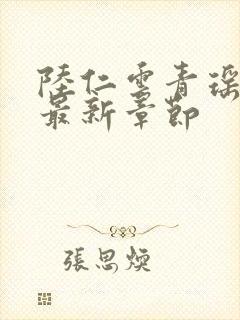 陸仁雲青瑶
最新章節
張思煥